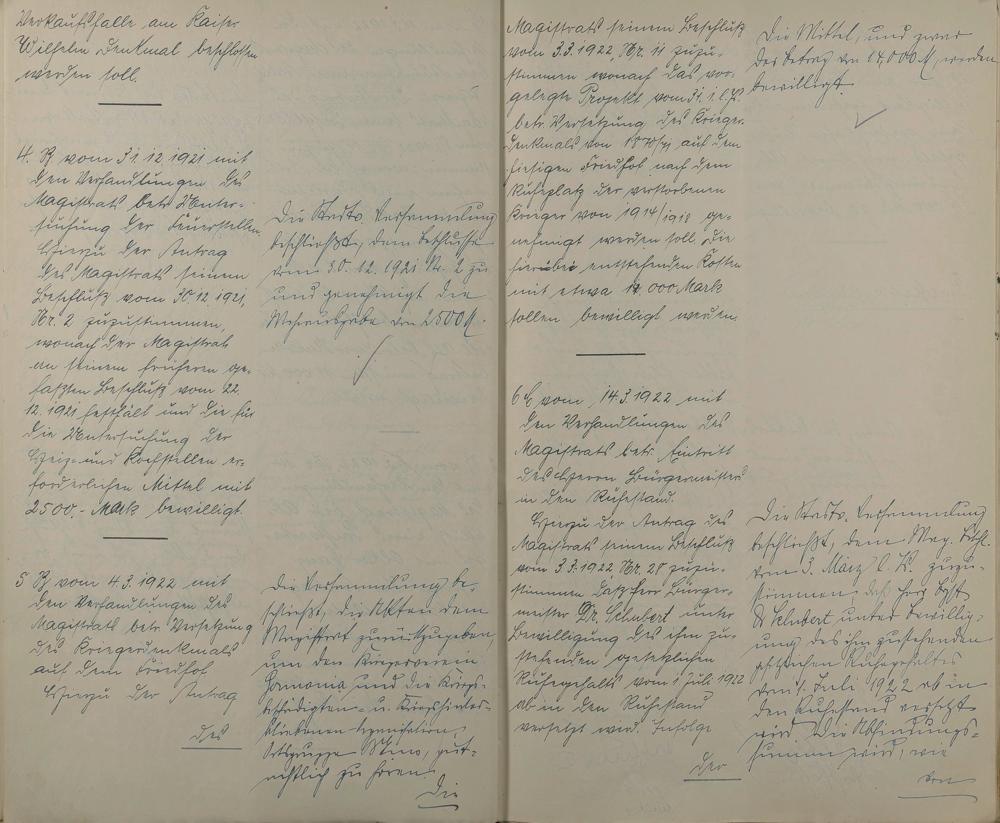 Verkaufsfalle am Kaiser
Wilhelm Denkmal beschlossen
werden soll.
4. B vom 31.12.1921 mit
den Verhandlungen des
Magistrats betr. Unter-
suchung der Feuerstellen.
Hierzu der Antrag
des Magistrats seinem
Beschluß vom 30.12.1921,
Nr. 2 zuzustimmen,
wonach der Magistrat
an seinem früheren ge-
faßten Beschluß vom 22.
12.1921 festhält und die für
die Untersuchung der
Heiz- und Kochstellen er-
forderlichen Mittel mit
2500.- Mark bewilligt.
Die Stadtv. Versammlung
beschließt, dem Beschlusse
vom 30.12.1921 Nr. 2 zu
und genehmigt die
Mehrausgabe von 2500 M.
5 B vom 4.3.1922 mit
den Verhandlungen des
Magistrats betr. Versetzung
des Kriegerdenkmals
auf dem Friedhof
Hierzu der Antrag
des
Die Versammlung be-
schließt, die Akten dem
Magistrat zurückzugeben,
um den Kriegerverein
Harmonia und die Kriegs-
beschädigten- u. Kriegshinter-
bliebenen Organisation,
Ortsgruppe, gut-
achtlich zu hören.
Die
Magistrats seinem Beschluß
vom 3.3.1922, Nr. 11 zuzu-
stimmen wonach das vor-
gelegte Projekt vom 31.1.l.J.
betr. Versetzung des Krieger-
denkmals von 1870/71 auf dem
hiesigen Friedhof nach dem
Ruheplatz der verstorbenen
Krieger von 1914/1918 ge-
nehmigt werden soll. Die
hierüber entstehenden Kosten
mit etwa 14.000 Mark
sollen bewilligt werden.
Die Mittel, und zwar
der Betrag von 14.000 M, werden
bewilligt.
6 E vom 14.3.1922 mit
den Verhandlungen des
Magistrats betr. Eintritt
des Herrn Bürgermeisters
in den Ruhestand.
Hierzu der Antrag des
Magistrats seinem Beschluß
vom 3.3.1922 Nr. 28 zuzu-
stimmen daß Herr Bürger-
meister Dr. Schubert unter
Bewilligung des ihm zu-
stehenden gesetzlichen
Ruhegehalts vom 1 Juli 1922
ab in den Ruhestand
versetzt wird. Infolge
der
Die Stadtv. Versammlung
beschließt, dem Mag. Beschl.
vom 3. März zuzu-
stimmen, daß Herr
Dr Schubert unter Bewillig-
ung des ihm zustehenden
gesetzlichen Ruhegehaltes
vom 1. Juli 1922 ab in
den Ruhestand versetzt
wird. Die Abfindungs-
summe wird, wie
von